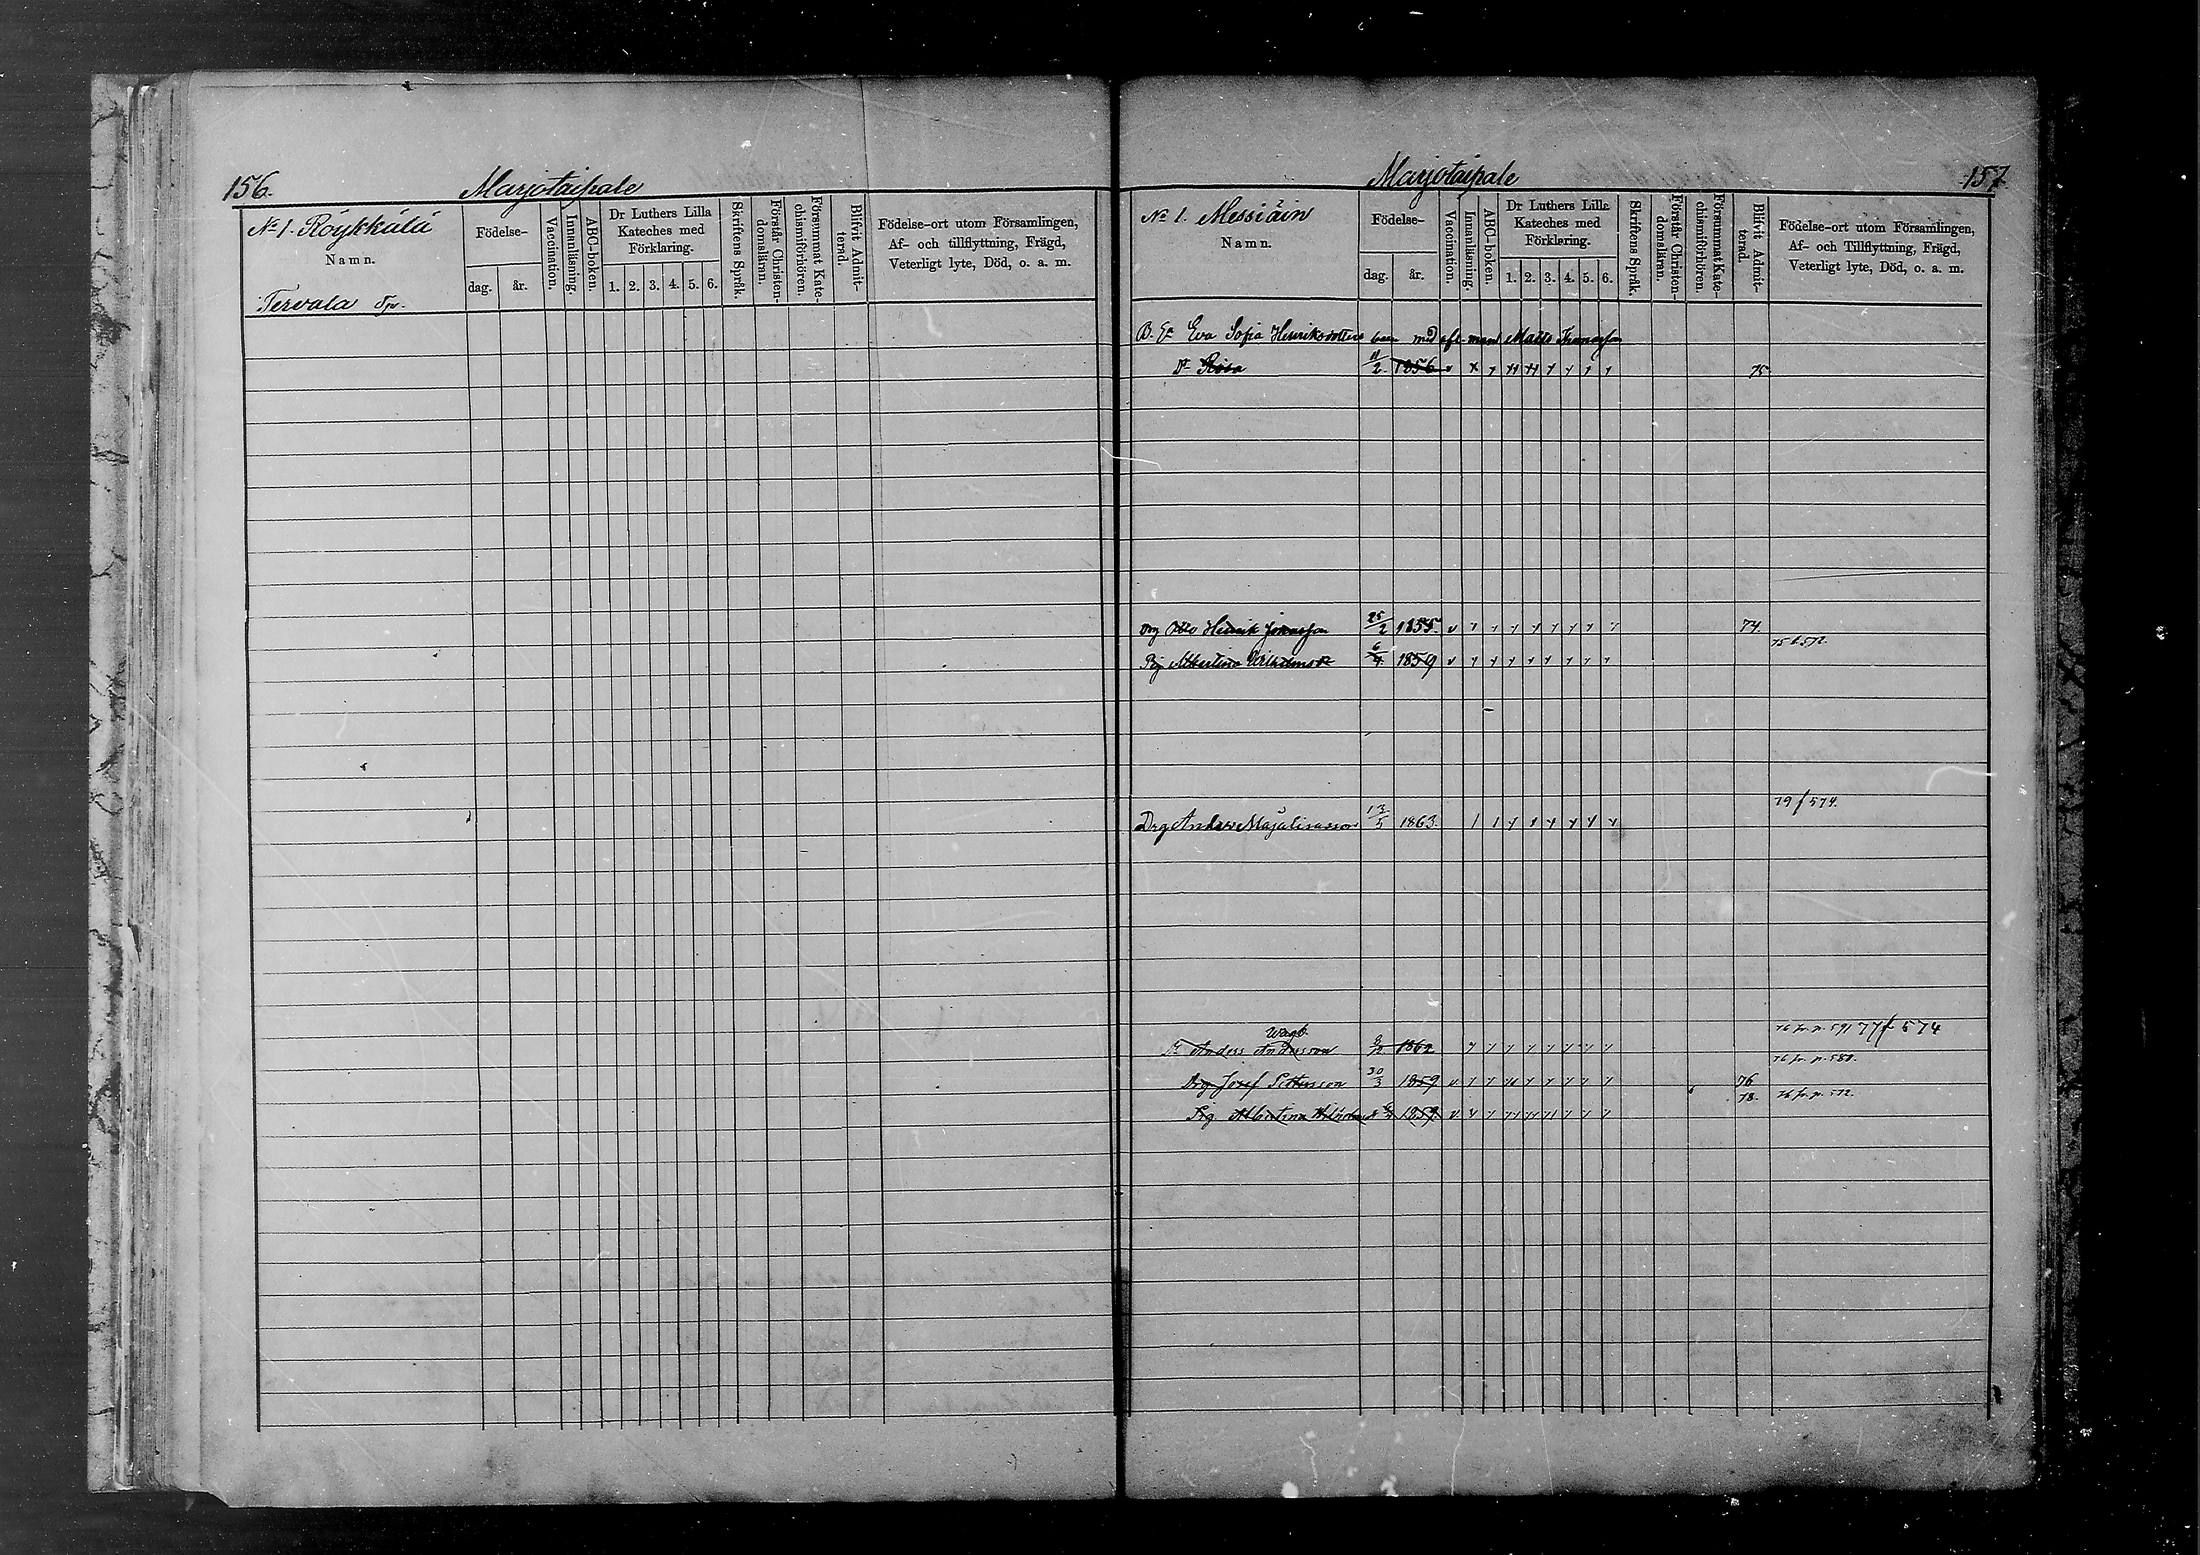 156.
Marjotaipale
No 1. Röykkülü
Namn.
Tervala
Födelse-
dag.
år.
Vaccination.
Innanläsning.
ABC-boken.
Dr Luthers Lilla
Kateches med
Förklaring.
1. 2. 3. 4. 5. 6.
Skriftens Språk.
Förstår Christen-
domsläran.
Försummat Kate-
chismiförhören.
Blifvit Admit-
terad.
Födelse-ort utom Församlingen,
Af- och tillflyttning, Frägd,
Veterligt lyte, Död, o. a. m.
Marjotaipale
157
No 1. Messiäin
Namn.
Födelse-
dag.
år.
Vaccination.
Innanläsning.
ABC-boken.
Dr Luthers Lilla
Kateches med
Förklaring.
1. 2. 3. 4. 5. 6.
Skriftens Språk.
Förstår Christen-
domsläran.
Försummat Kate-
chismiförhören.
Blifvit Admit-
terad.
Födelse-ort utom Församlingen,
Af- och Tillflyttning, Frägd,
Veterligt lyte, Död, o. a. m.
B. Ea Eva Sofia Henriksdotters barn med afl. man Matts Thomasson
Dr Rosa 11/2 1856 75
Drg Otto Henrik Jonasson 25/2 1855. 74.
75 f 572.
Pig Albertina Wilhelmsdr 6/4 1859
79 f 574.
Drg Anders Majalisasson 13/5 1863.
76 fr. p. 591 77 f 574
Anders Andersson 1862
76 fr. p. 580.
Drg Josef Pettersson 30/3 1859 76
78. 76 fr. p. 572.
Pig Albertina 1859